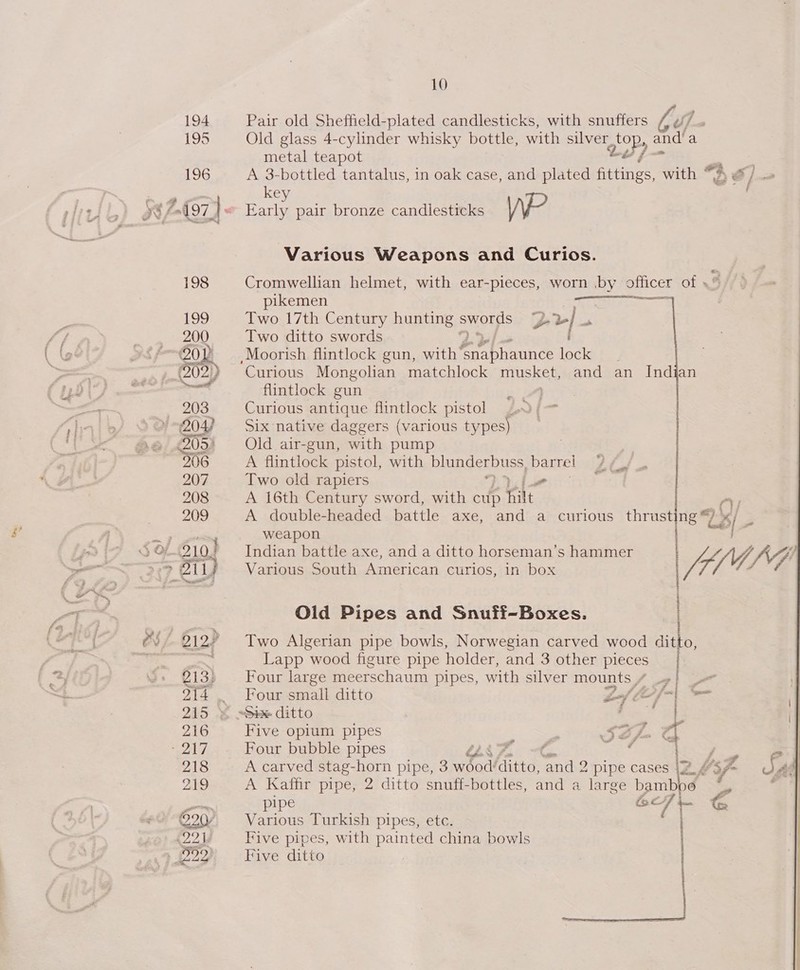 10
194 Pair old Sheffield-plated candlesticks, with snuffers
195 Old glass 4-cylinder whisky bottle, with silver top, and a
metal teapot
196 A 3-bottled tantalus, in oak case, and plated fittings, with
key
197 Early pair bronze candlesticks WP
Various Weapons and Curios.
198 Cromwellian helmet, with ear-pieces, worn by officer of
pikemen
199 Two 17th Century hunting swords
200 Two ditto swords
201 Moorish flintlock gun, with snaphaunce lock
202 Curious Mongolian matchlock musket, and an Indian
flintlock gun
203 Curious antique flintlock pistol
204 Six native daggers (various types)
205 Old air-gun, with pump
206 A flintlock pistol, with blunderbuss barrel
207 Two old rapiers
208 A 16th Century sword, with cup hilt
209 A double-headed battle axe, and a curious thrusting
weapon
210 Indian battle axe, and a ditto horseman's hammer
211 Various South American curios, in box
Old Pipes and Snuff-Boxes.
212 Two Algerian pipe bowls, Norwegian carved wood ditto,
Lapp wood figure pipe holder, and 3 other pieces
213 Four large meerschaum pipes, with silver mounts
214 Four small ditto
215 Six ditto
216 Five opium pipes
217 Four bubble pipes
218 A carved stag-horn pipe, 3 wood ditto, and 2 pipe cases
219 A Kaffir pipe, 2 ditto snuff-bottles, and a large bamboo
pipe
220 Various Turkish pipes, etc.
221 Five pipes, with painted china bowls
222 Five ditto